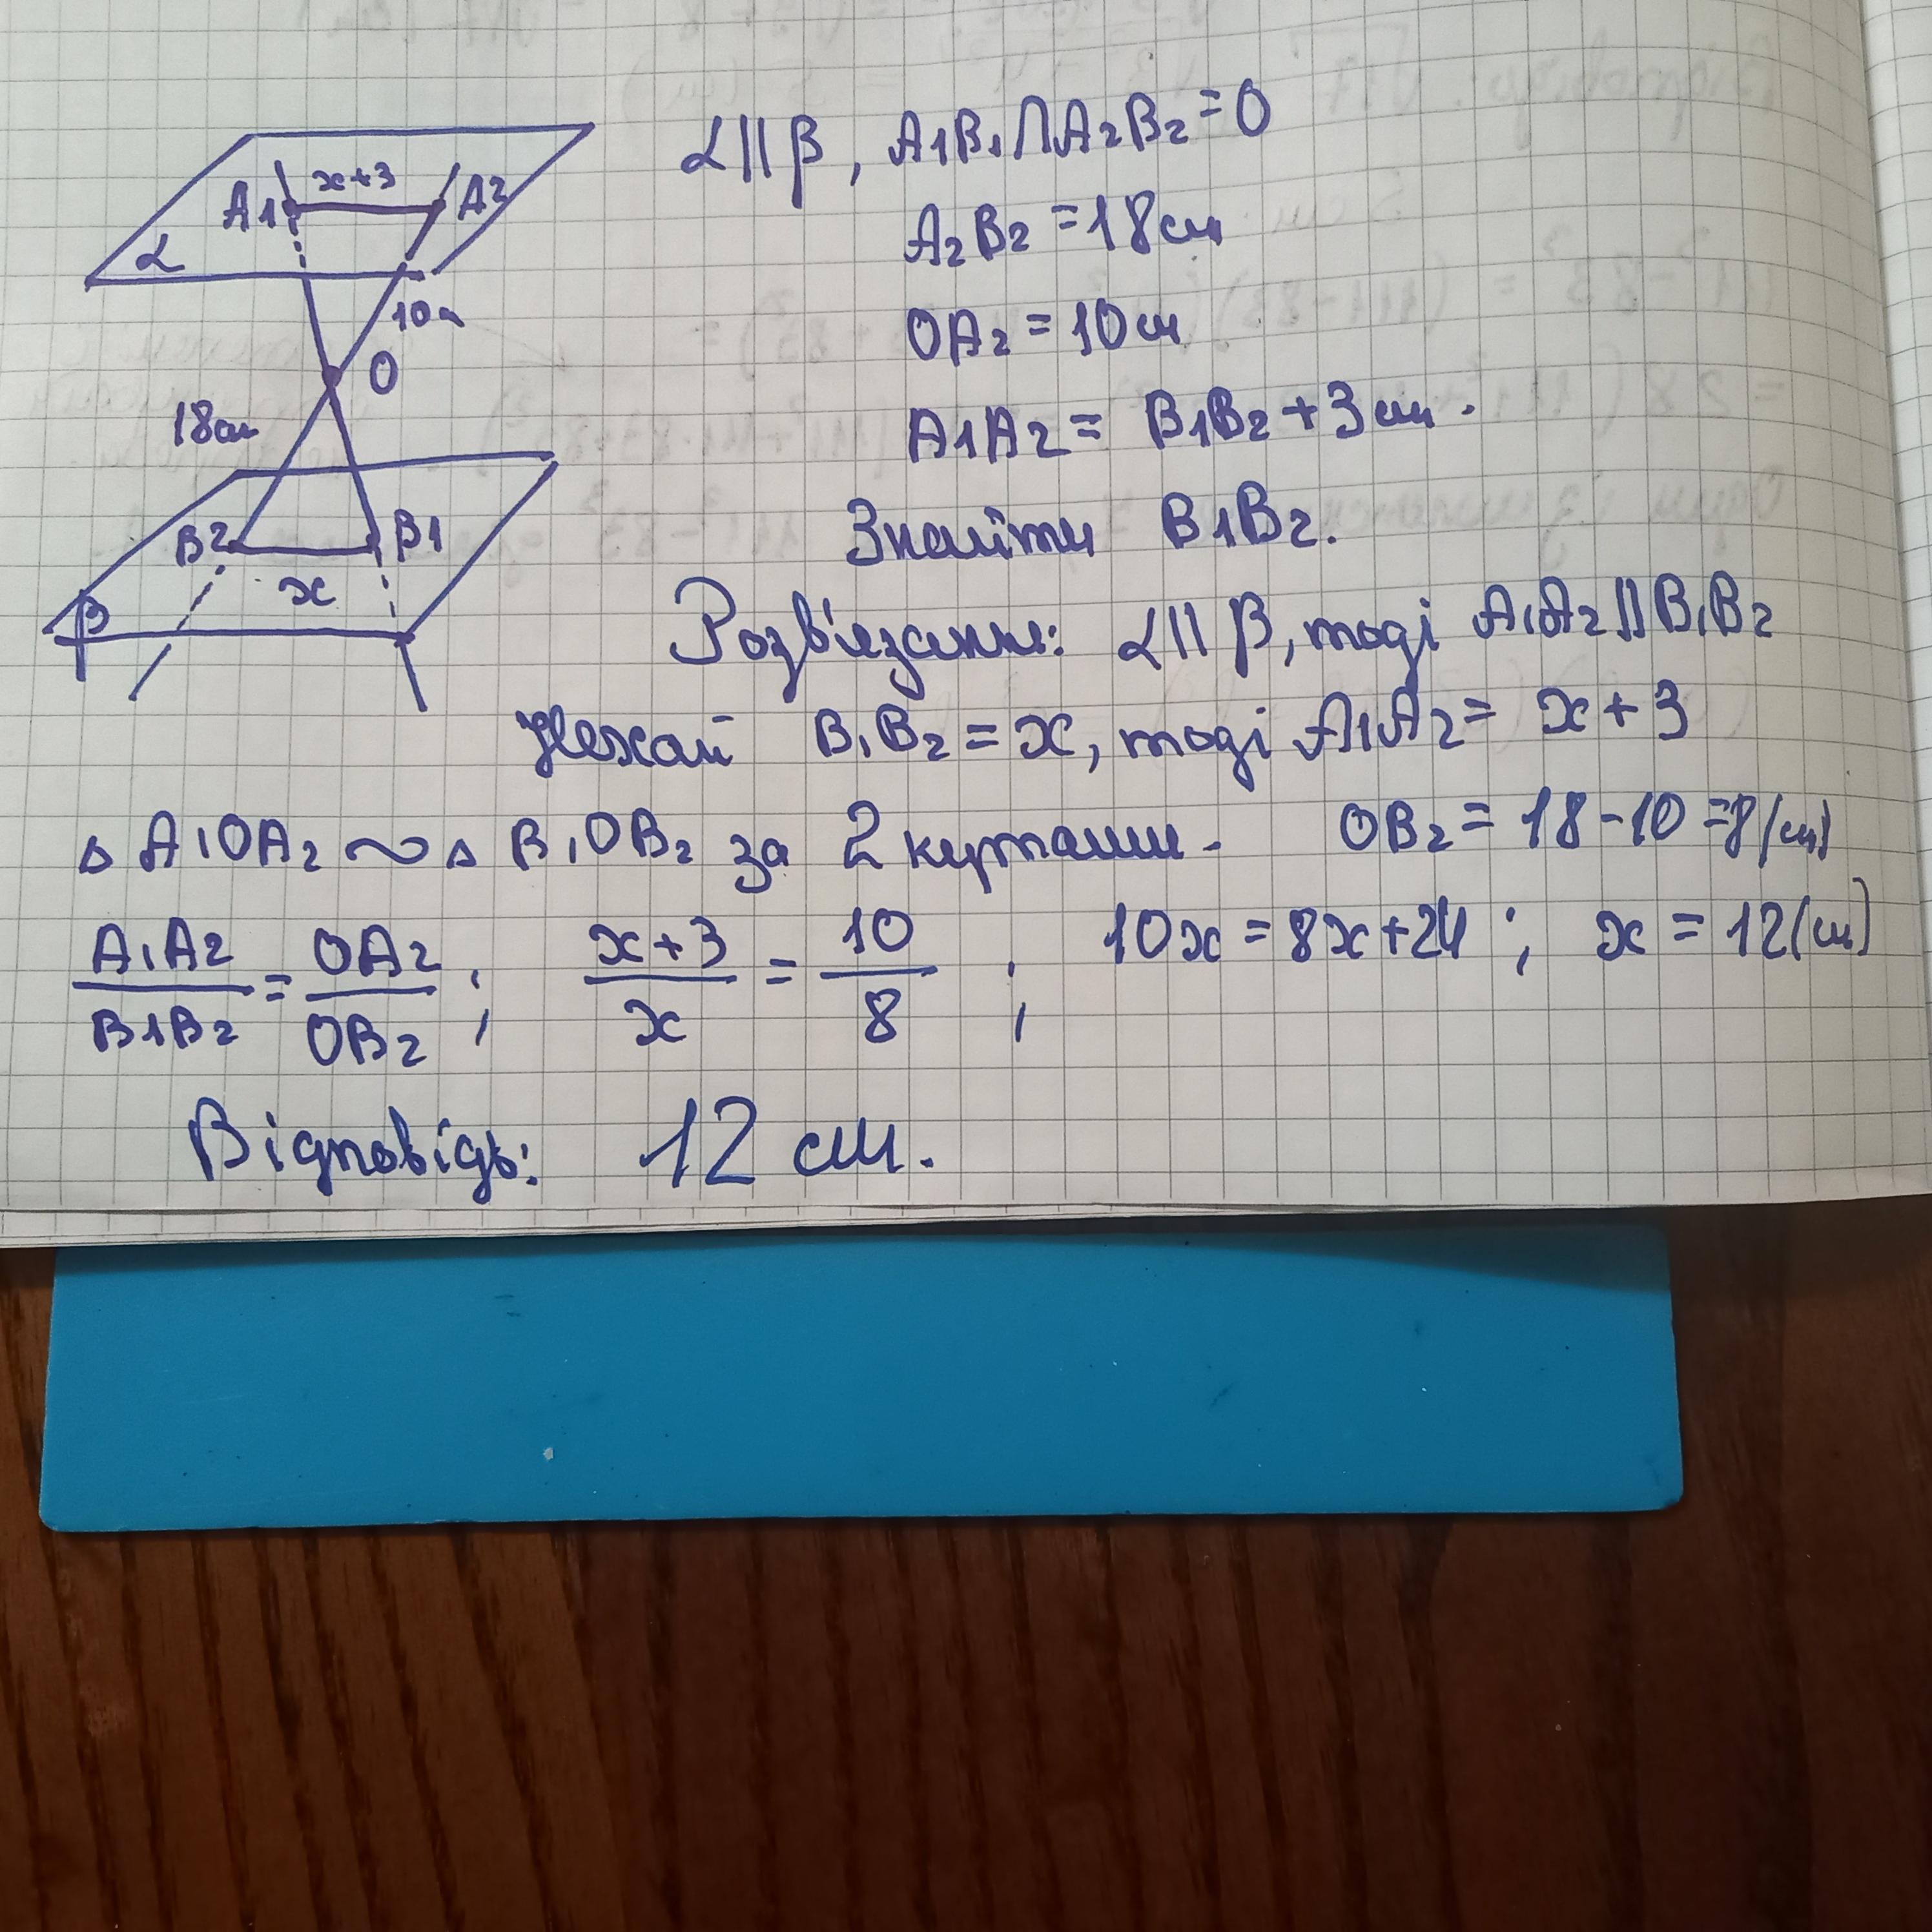 α || β, A₁B₁ ∩ A₂B₂ = O
A₁ x+3 A₂
α
A₂B₂ = 18 см
10 см
OA₂ = 10 см
O
18 см
A₁A₂ = B₁B₂ + 3 см.
B₂ B₁
x
β
Знайти B₁B₂.
Розв'язання: α || β, тоді A₁A₂ || B₁B₂
Нехай B₁B₂ = x, тоді A₁A₂ = x + 3
△ A₁OA₂ ~ △ B₁OB₂ за 2 кутами. OB₂ = 18 - 10 = 8 (см)
A₁A₂/B₁B₂ = OA₂/OB₂ ; x+3/x = 10/8 ; 10x = 8x + 24 ; x = 12 (см)
Відповідь: 12 см.